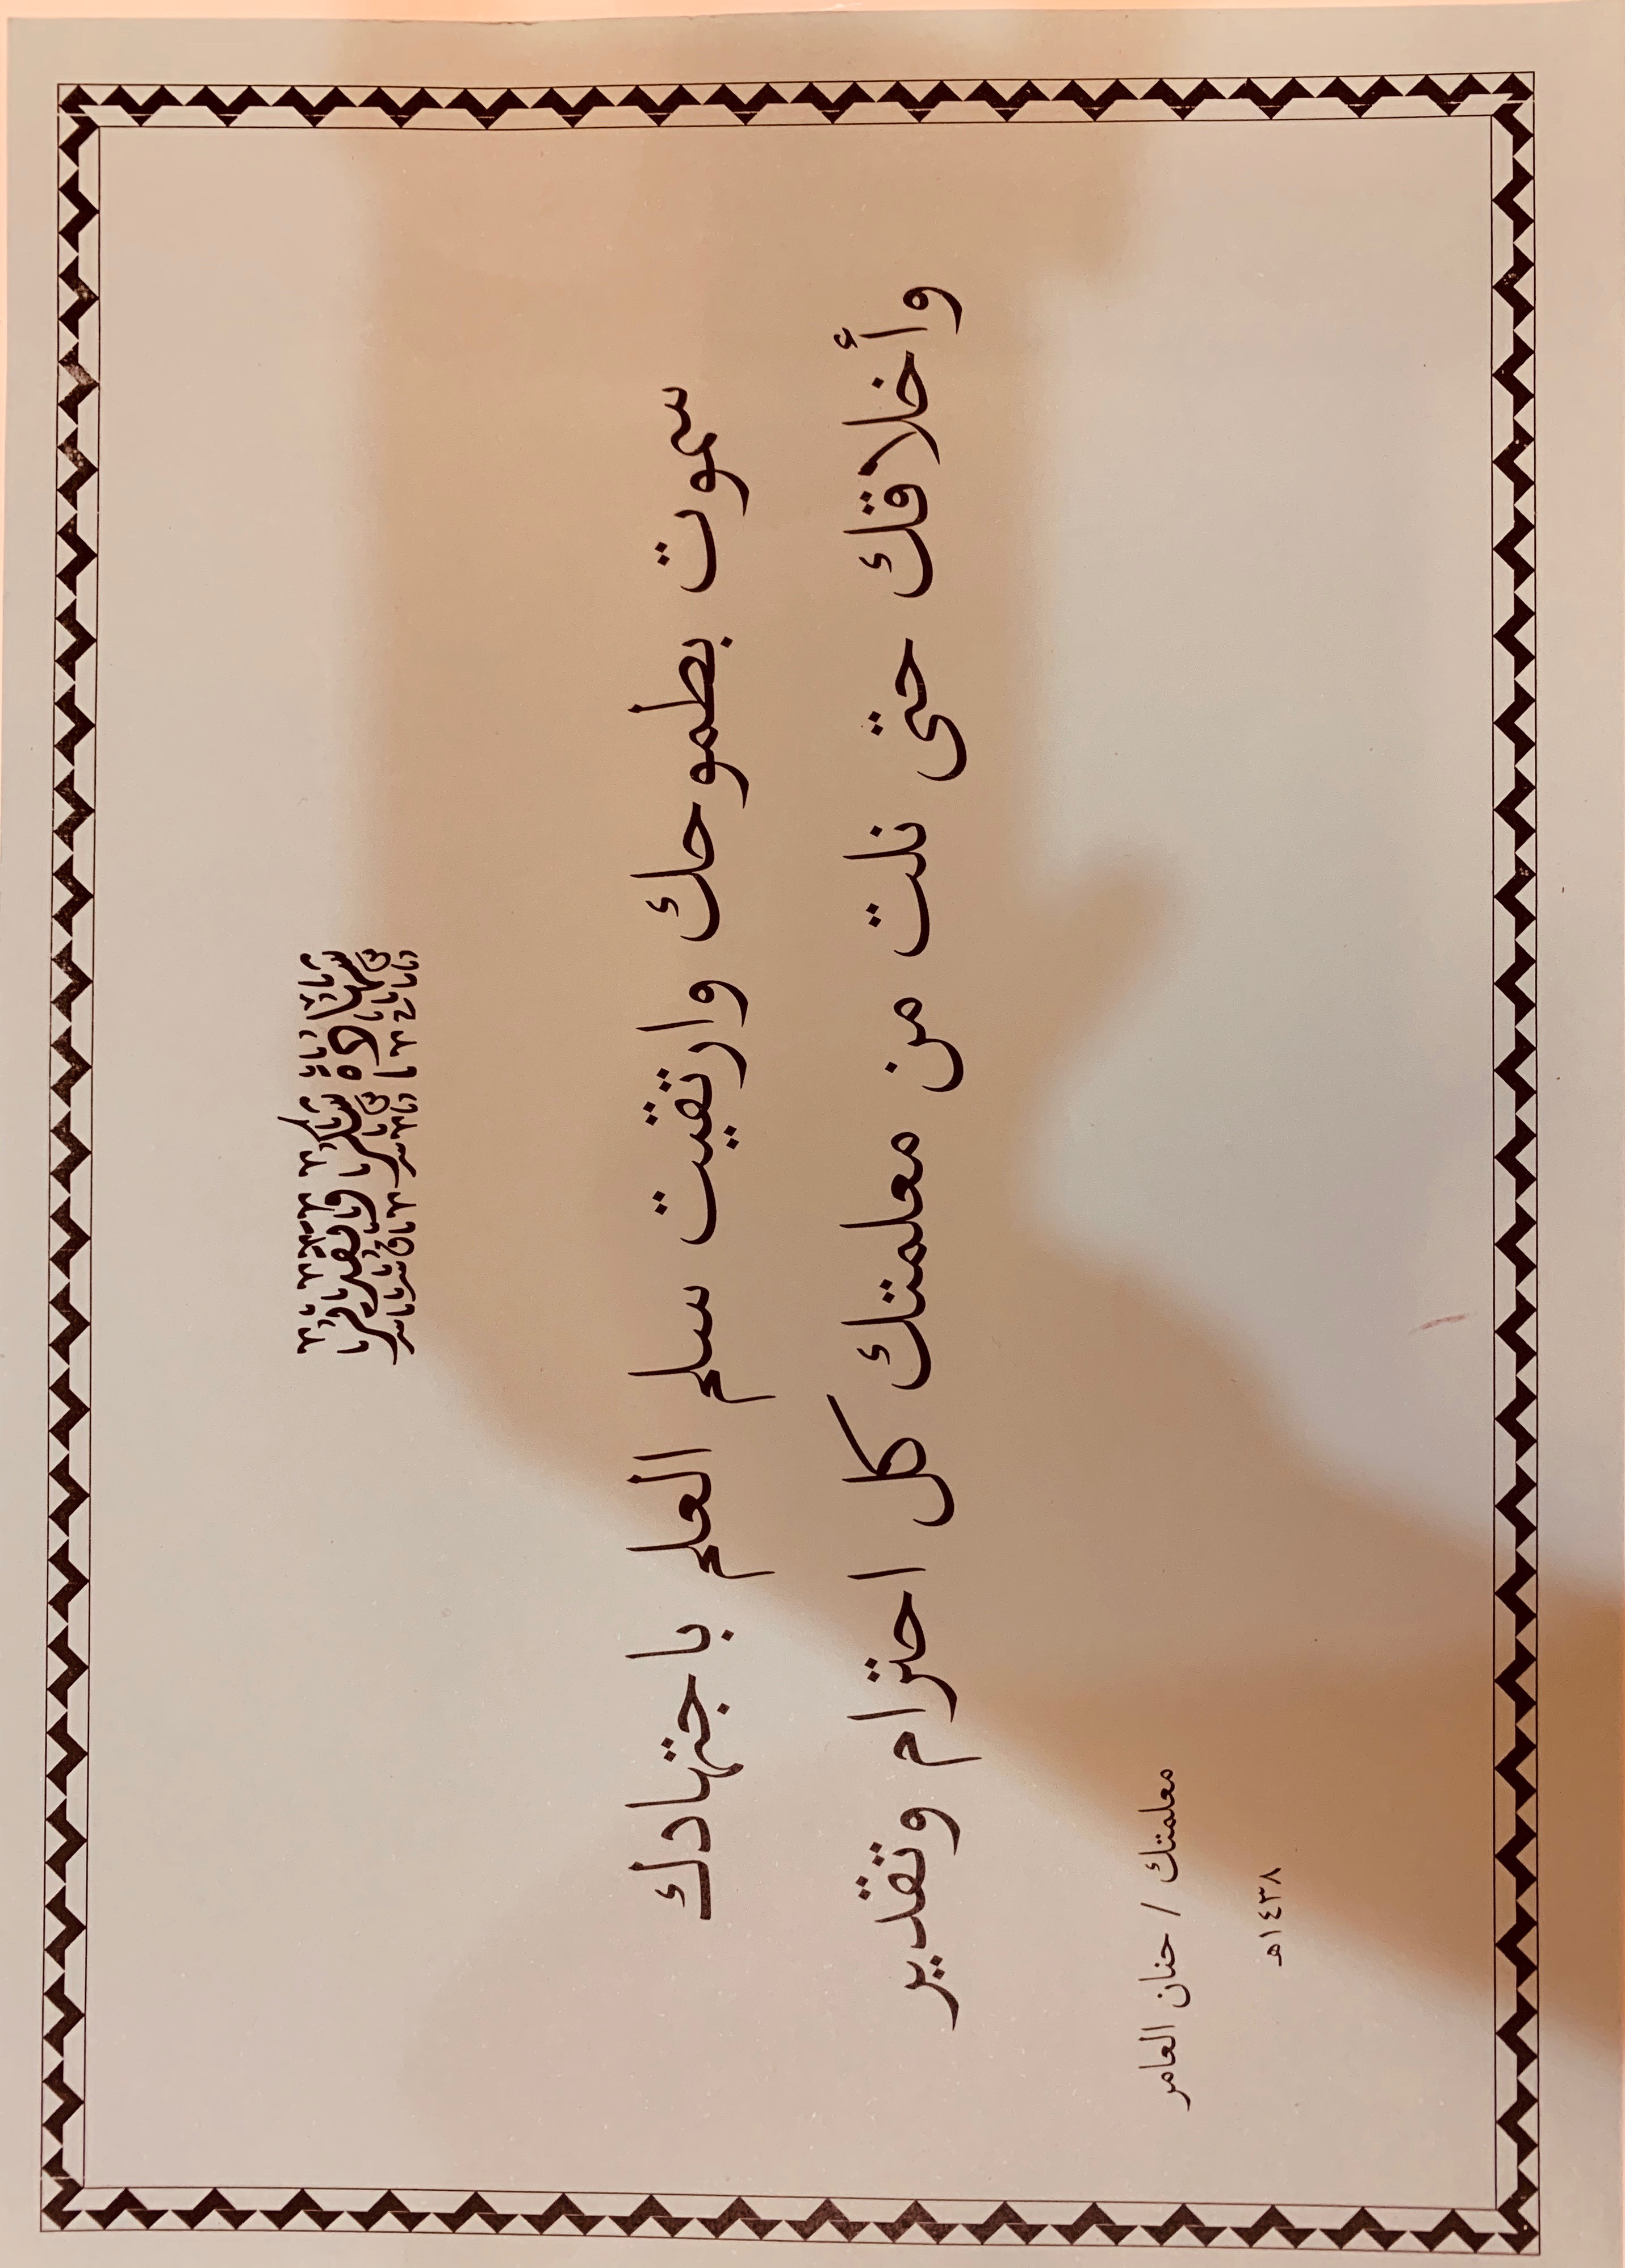 شهادة شكر وتقدير
سموت بطموحك وارتقيت سلم العلم باجتهادك
وأخلاقك حتى نلت من معلمتك كل احترام وتقدير
معلمتك / حنان العامر
١٤٣٨هـ